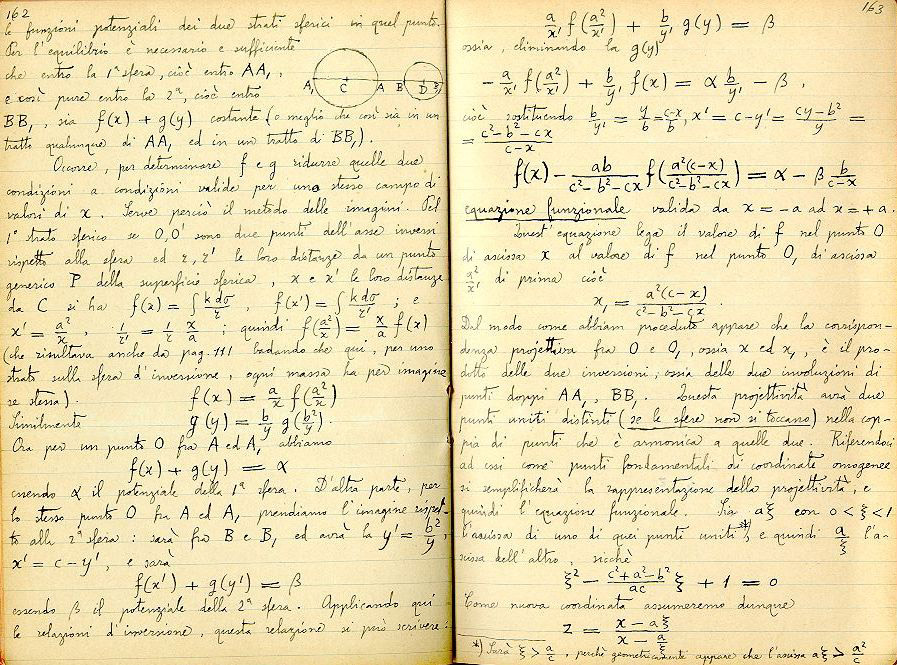 162
le funzioni potenziali dei due strati sferici in quel punto.
Per l'equilibrio è necessario e sufficiente
che entro la 1ª sfera, cioè entro AA₁,
e così pure entro la 2ª, cioè entro
A₁ C A B D B₁
BB₁, sia f(x) + g(y) costante (o meglio che così sia in un
tratto qualunque di AA₁ ed in un tratto di BB₁).
Occorre, per determinare f e g ridurre quelle due
condizioni a condizioni valide per uno stesso campo di
valori di x. Serve perciò il metodo delle imagini. Pel
1º strato sferico se O,O' sono due punti dell'asse inversi
rispetto alla sfera ed r, r' le loro distanze da un punto
generico P della superficie sferica, x e x' le loro distanze
da C si ha f(x) = ∫ k dσ/r, f(x') = ∫ k dσ/r' ; e
x' = a²/x, 1/r' = 1/r x/a ; quindi f(a²/x) = x/a f(x)
(che risultava anche da pag. 111 badando che qui, per uno
strato sulla sfera d'inversione, ogni massa ha per imagine
se stessa). f(x) = a/x f(a²/x)
Similmente g(y) = b/y g(b²/y).
Ora per un punto O fra A ed A₁ abbiamo
f(x) + g(y) = α
essendo α il potenziale della 1ª sfera. D'altra parte, per
lo stesso punto O fra A ed A₁ prendiamo l'imagine rispet-
to alla 2ª sfera: sarà fra B e B₁ ed avrà la y' = b²/y,
x' = c − y', e sarà
f(x') + g(y') = β
essendo β il potenziale della 2ª sfera. Applicando qui
le relazioni d'inversione, questa relazione si può scrivere:
163
a/x' f(a²/x') + b/y' g(y) = β
ossia, eliminando la g(y)
− a/x' f(a²/x') + b/y' f(x) = α b/y' − β,
cioè sostituendo b/y' = y/b = c-x/b, x' = c − y' = cy − b²/y =
= c² − b² − cx/c − x
f(x) − ab/c² − b² − cx f(a²(c−x)/c² − b² − cx) = α − β b/c−x
equazione funzionale valida da x = −a ad x = +a.
Quest'equazione lega il valore di f nel punto O
di ascissa x al valore di f nel punto O₁ di ascissa
a²/x' di prima cioè
x₁ = a²(c−x)/c² − b² − cx.
Dal modo come abbiam proceduto appare che la corrispon-
denza projettiva fra O e O₁, ossia x ed x₁, è il pro-
dotto delle due inversioni, ossia delle due involuzioni di
punti doppi AA₁, BB₁. Questa projettività avrà due
punti uniti distinti (se le sfere non si toccano) nella cop-
pia di punti che è armonica a quelle due. Riferendoci
ad essi come punti fondamentali di coordinate omogenee
si semplificherà la rappresentazione della projettività, e
quindi l'equazione funzionale. Sia aξ con 0 < ξ < 1
l'ascissa di uno di quei punti uniti *) e quindi a/ξ l'a-
scissa dell'altro, sicchè
ξ² − c² + a² − b²/ac ξ + 1 = 0
Come nuova coordinata assumeremo dunque
z = x − aξ/x − a/ξ
*) Sarà ξ > a/c, perchè geometricamente appare che l'ascissa aξ > a²/c